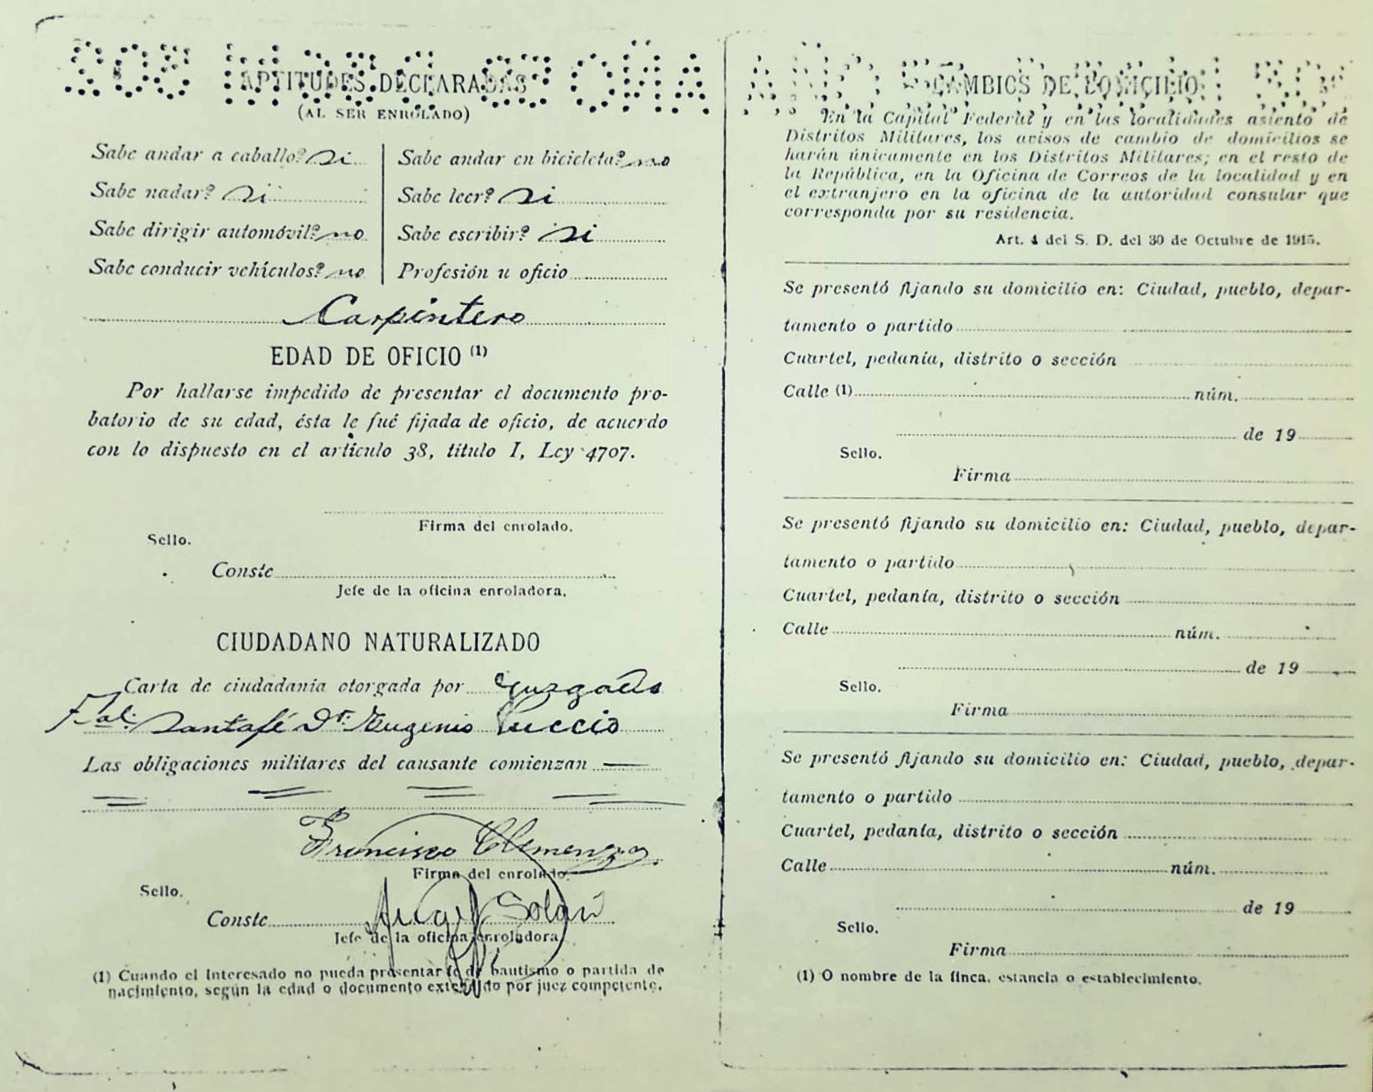 APTITUDES DECLARADAS
(AL SER ENROLADO)
Sabe andar a caballo? si
Sabe nadar? si
Sabe dirigir automóvil? no
Sabe conducir vehículos? no
Sabe andar en bicicleta? no
Sabe leer? si
Sabe escribir? si
Profesión u oficio
Carpintero
EDAD DE OFICIO (1)
Por hallarse impedido de presentar el documento pro-
batorio de su edad, ésta le fué fijada de oficio, de acuerdo
con lo dispuesto en el artículo 38, título I, Ley 4707.
Firma del enrolado.
Sello.
Conste
Jefe de la oficina enroladora.
CIUDADANO NATURALIZADO
Carta de ciudadanía otorgada por Juzgado
Santafé Dr. Eugenio Puccio
Las obligaciones militares del causante comienzan
Francisco Clemenza
Firma del enrolado.
Sello.
Conste Angel Solari
Jefe de la oficina enroladora
(1) Cuando el interesado no pueda presentar fe de bautismo o partida de
nacimiento, según la edad o documento extendido por juez competente.
CAMBIOS DE DOMICILIO
En la Capital Federal y en las localidades asiento de
Distritos Militares, los avisos de cambio de domicilios se
harán únicamente en los Distritos Militares; en el resto de
la República, en la Oficina de Correos de la localidad y en
el extranjero en la oficina de la autoridad consular que
corresponda por su residencia.
Art. 4 del S. D. del 30 de Octubre de 1915.
Se presentó fijando su domicilio en: Ciudad, pueblo, depar-
tamento o partido
Cuartel, pedanía, distrito o sección
Calle (1) núm.
de 19
Sello.
Firma
Se presentó fijando su domicilio en: Ciudad, pueblo, depar-
tamento o partido
Cuartel, pedanía, distrito o sección
Calle núm.
de 19
Sello.
Firma
Se presentó fijando su domicilio en: Ciudad, pueblo, depar-
tamento o partido
Cuartel, pedanía, distrito o sección
Calle núm.
de 19
Sello.
Firma
(1) O nombre de la finca, estancia o establecimiento.